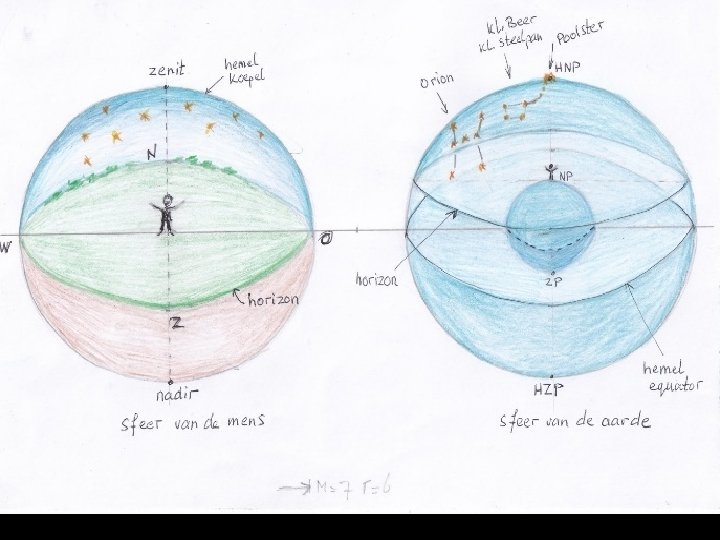 zenit
hemel
koepel
N
W
O
horizon
Z
nadir
sfeer van de mens
kl. Beer
kl. steelpan
poolster
orion
HNP
NP
horizon
ZP
hemel
equator
HZP
sfeer van de aarde
→ M=7 r=6